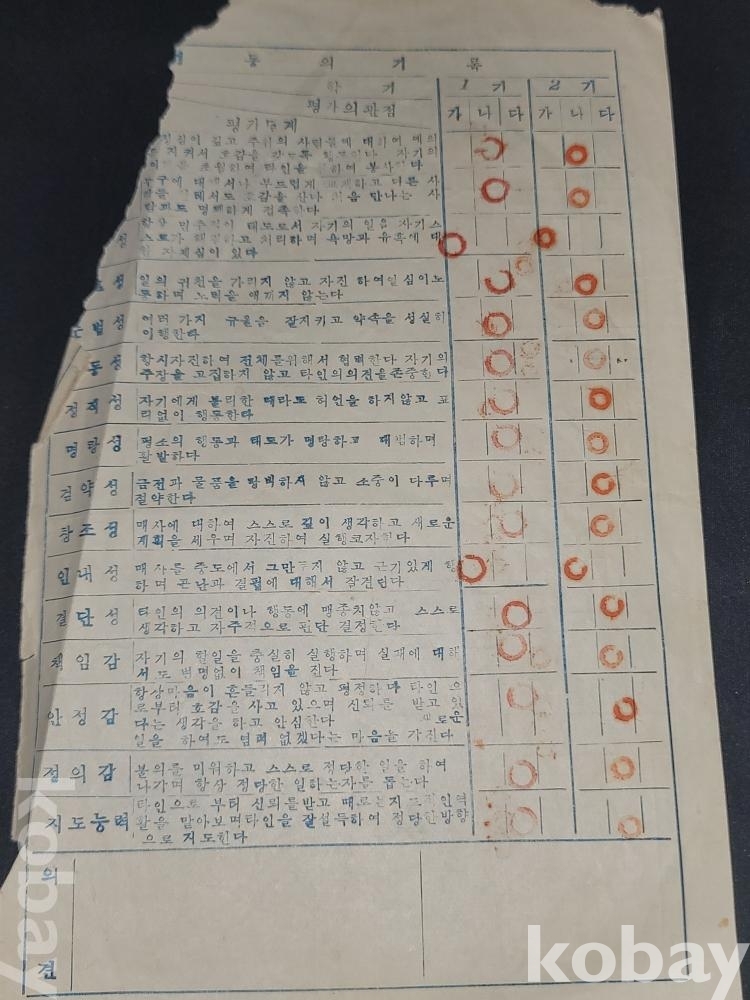 동 의 기 록
학 기
1 기 2 기
평가의관점
가 나 다 가 나 다
평가단계
깊고 주위의 사람들에 대하여 예의
지켜서 호감을 자기의
타인을 위하여 봉사한다
부드럽게 교제하고 다른 사
호감을 산다 처음 만나는 사
람과도 명쾌하게 접촉한다
항상 태도로서 자기의 일을 자기스
성 스로가 해결하고 처리하며 욕망과 유혹에 대
한 자제심이 있다
성 일의 귀천을 가리지 않고 자진 하여일심이노
동하며 노력을 애끼지 않는다
법성 여러 가지 규율을 잘지키고 약속을 성실히
이행한다
동성 항시자진하여 전체를위해서 협력한다 자기의
주장을 고집하지 않고 타인의의견을존중한다
정직성 자기에게 불리한 때라도 허언을 하지않고 표
리없이 행동한다
명랑성 평소의 행동과 태도가 명랑하고 대범하며
활발하다
검약성 금전과 물품을 랑비하지 않고 소중이 다루며
절약한다
창조성 매사에 대하여 스스로 깊이 생각하고 새로운
계획을 세우며 자진하여 실행코자한다
인내성 매사를 중도에서 그만두지 않고 근기있게 행
하며 곤난과 결핍에 대해서 잘견딘다
결단성 타인의 의견이나 행동에 맹종치않고 스스로
생각하고 자주적으로 판단 결정한다
책임감 자기의 할일을 충실히 실행하며 실패에 대해
서도 변명없이 책임을 진다
안정감 항상마음이 흔들리지 않고 평정하다 타인 으
로부터 호감을 사고 있으며 신뢰를 받고 있
다는 생각을 하고 안심한다 새로운
일을 하여도 염려 없겠다는 마음을 가진다
정의감 불의를 미워하고 스스로 정당한 일을 하여
나가며 항상 정당한 일하는자를 돕는다
지도능력 타인으로 부터 신뢰를받고 때로는지도적인역
활을 맡아보며타인을 잘설득하여 정당한방향
으로 지도한다
의
견
kobay
kobay